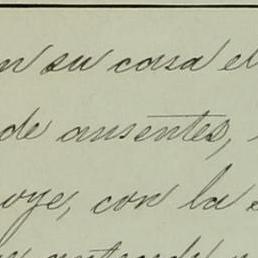 n su casa el
de ausentes,
oye, con la